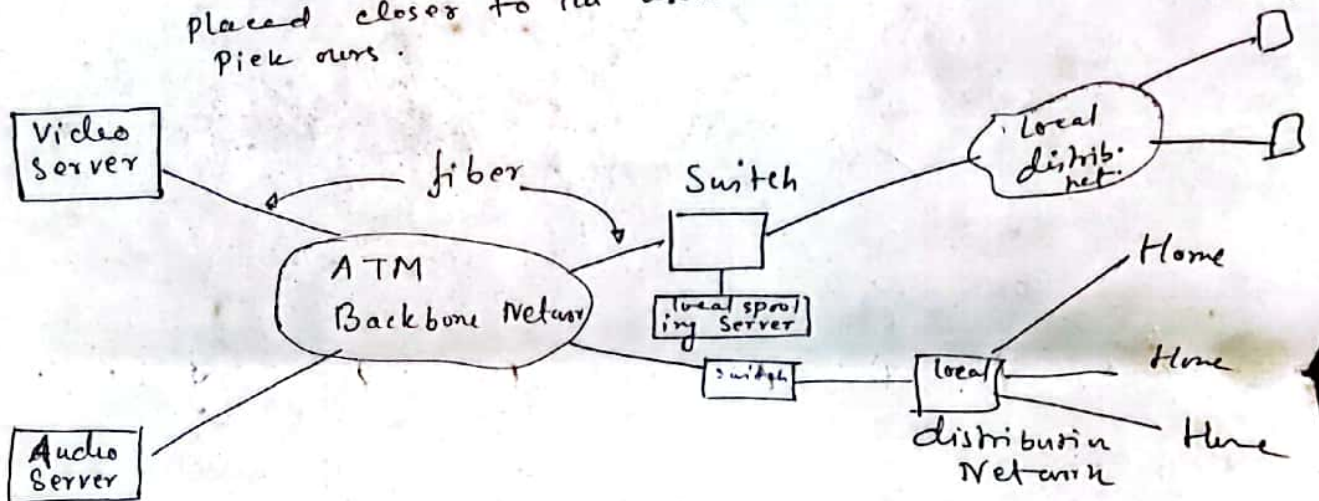 placed closer to
Pick ours.
Video
Server
fiber
Switch
Local
distrib.
net.
ATM
Backbone Networ
local spool
ing Server
Home
Switch
local
Home
distributin
Network
Home
Audio
Server